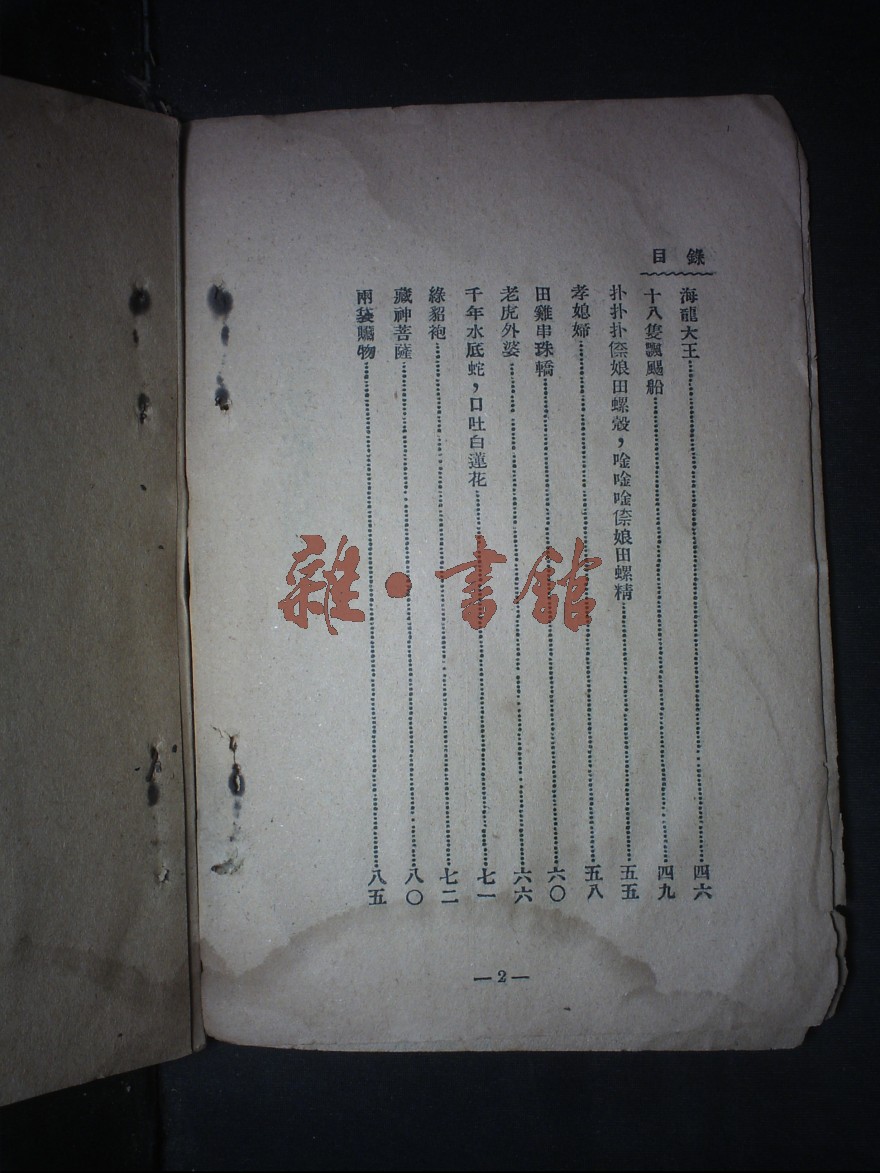 目錄
海龍大王……四六
十八隻飄颺船……四九
扑扑扑㑚娘田螺殼，唫唫唫㑚娘田螺精……五五
孝媳婦……五八
田雞串珠轎……六〇
老虎外婆……六六
千年水底蛇，口吐白蓮花……七一
綠貂袍……七二
藏神菩薩……八〇
兩袋贓物……八五
—2—
雜·書館